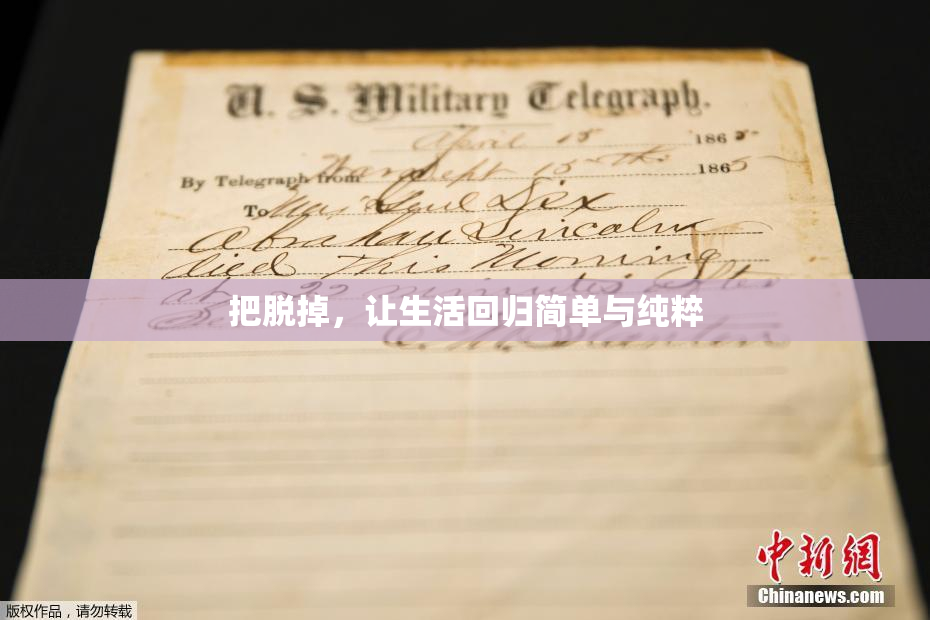 U. S. Military Telegraph.
April 15 1865
By Telegraph from War Dept 15th 1865
To Maj Genl Dix
Abraham Lincoln
died This Morning
at 22 minutes after
把脱掉，让生活回归简单与纯粹
中新网
Chinanews.com
版权作品，请勿转载